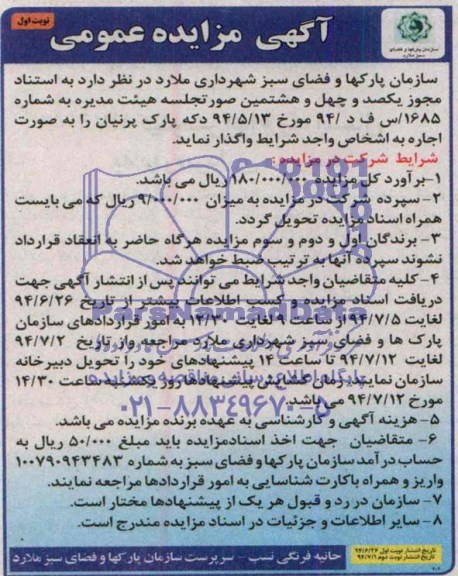 نوبت اول
آگهی مزایده عمومی
سازمان پارکها و فضای
سبز ملارد
سازمان پارکها و فضای سبز شهرداری ملارد در نظر دارد به استناد
مجوز یکصد و چهل و هشتمین صورتجلسه هیئت مدیره به شماره
۱۶۸۵/س ف د /۹۴ مورخ ۹۴/۵/۱۳ دکه پارک پرنیان را به صورت
اجاره به اشخاص واجد شرایط واگذار نماید.
شرایط شرکت در مزایده :
۱-برآورد کل مزایده ۱۸۰/۰۰۰/۰۰۰ ریال می باشد.
۲- سپرده شرکت در مزایده به میزان ۹/۰۰۰/۰۰۰ ریال که می بایست
همراه اسناد مزایده تحویل گردد.
۳- برندگان اول و دوم و سوم مزایده هرگاه حاضر به انعقاد قرارداد
نشوند سپرده آنها به ترتیب ضبط خواهد شد.
۴- کلیه متقاضیان واجد شرایط می توانند پس از انتشار آگهی جهت
دریافت اسناد مزایده و کسب اطلاعات بیشتر از تاریخ ۹۴/۶/۲۶
لغایت ۹۴/۷/۵ از ساعت ۹ لغایت ۱۳/۳۰ به امور قراردادهای سازمان
پارک ها و فضای سبز شهرداری ملارد مراجعه واز تاریخ ۹۴/۷/۲
لغایت ۹۴/۷/۱۲ تا ساعت ۱۴ پیشنهادهای خود را تحویل دبیرخانه
سازمان نمایند. زمان گشایش پیشنهادها روز یکشنبه ساعت ۱۴/۳۰
مورخ ۹۴/۷/۱۲ می باشد.
۵- هزینه آگهی و کارشناسی به عهده برنده مزایده می باشد.
۶- متقاضیان جهت اخذ اسنادمزایده باید مبلغ ۵۰/۰۰۰ ریال به
حساب درآمد سازمان پارکها و فضای سبز به شماره ۱۰۰۷۹۰۹۴۳۴۸۳
واریز و همراه باکارت شناسایی به امور قراردادها مراجعه نمایند.
۷- سازمان در رد و قبول هر یک از پیشنهادها مختار است.
۸- سایر اطلاعات و جزئیات در اسناد مزایده مندرج است.
تاریخ انتشار نوبت اول ۹۴/۶/۲۶
تاریخ انتشار نوبت دوم ۹۴/۷/۱
حانیه فرنگی نسب - سرپرست سازمان پارکها و فضای سبز ملارد
ParsNamadData
پایگاه اطلاع رسانی مناقصه و مزایده
۰۲۱-۸۸۳۴۹۶۷۰-۵